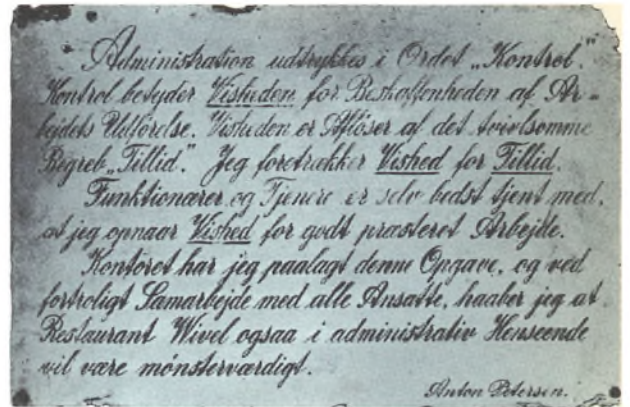 Administration udtrykkes i Ordet „Kontrol“.
Kontrol betyder Visheden for Beskaffenheden af Ar-
bejdets Udførelse. Visheden er Afløser af det tvivlsomme
Begreb „Tillid“. Jeg foretrækker Vished for Tillid.
Funktionærer og Tjenere er selv bedst tjent med,
at jeg opnaar Vished for godt præsteret Arbejde.
Kontoret har jeg paalagt denne Opgave, og ved
fortroligt Samarbejde med alle Ansatte, haaber jeg at
Restaurant Wivel ogsaa i administrativ Henseende
vil være mónsterværdigt.
Anton Petersen.